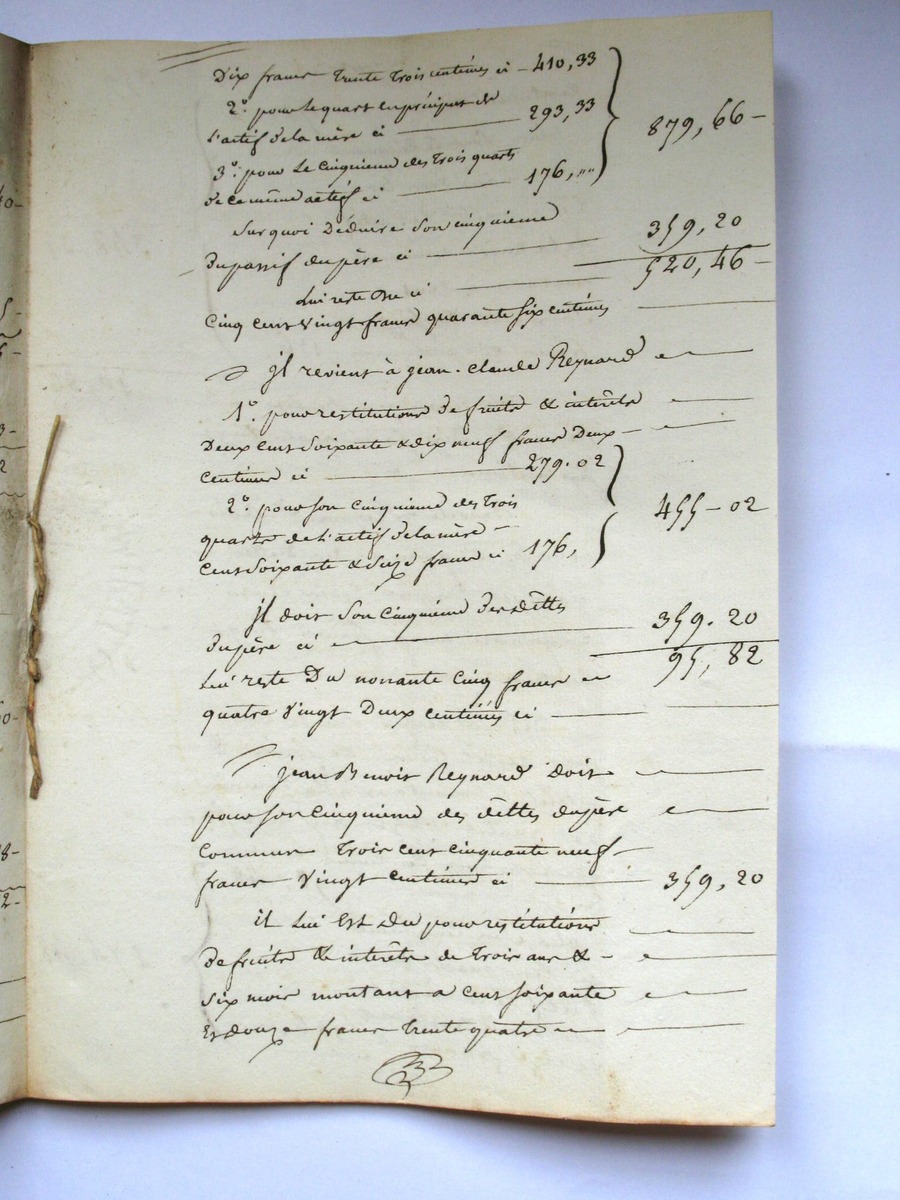 Dix francs trente trois centimes ci – 410,33
2° pour le quart en préciput de
l'actif de la mère ci 293,33
879,66 –
3° pour le cinquieme des trois quarts
de ce même actif ci 176,""
sur quoi déduire son cinquieme
du passif du père ci 359,20
Lui reste due ci 520,46 –
Cinq cent vingt francs quarante six centimes
il revient à jean-claude Reynard
1° pour restitutions de fruits & intérêts
Deux cent soixante & dix neuf francs Deux –
centimes ci 279.02
2° pour son cinquieme des trois
455 – 02
quarts de l'actif de la mère –
Cent soixante & seize francs ci 176,
il doit son cinquieme des dêttes
du père ci 359.20
95,82
Lui reste Du nonante cinq francs
quatre vingt Deux centimes ci
jean Benoit Reynard doit
pour son cinquieme des dêttes du père
commun trois cent cinquante neuf
francs vingt centimes ci 359,20
il lui est du pour restitutions
de fruits & intérêts de trois ans & –
six mois montant a cent soixante
et douze francs trente quatre